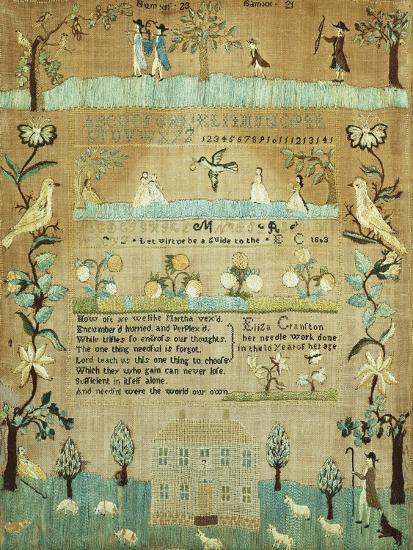 Num xii · 23
Sam xx · 21
12345678910111213141
M R
Let virtue be a Guide to the · E C 1803
How oft are we like Martha vex'd,
Encumber'd hurried, and Perplex'd,
While trifles so enirols our thoughts,
The one thing needful is forgot,
Lord teach us this one thing to choose
Which they who gain can never lose,
Sufficient in itself alone,
And needful were the world our own
Eliza Cranston
her needle work done
in the 10 Year of her age